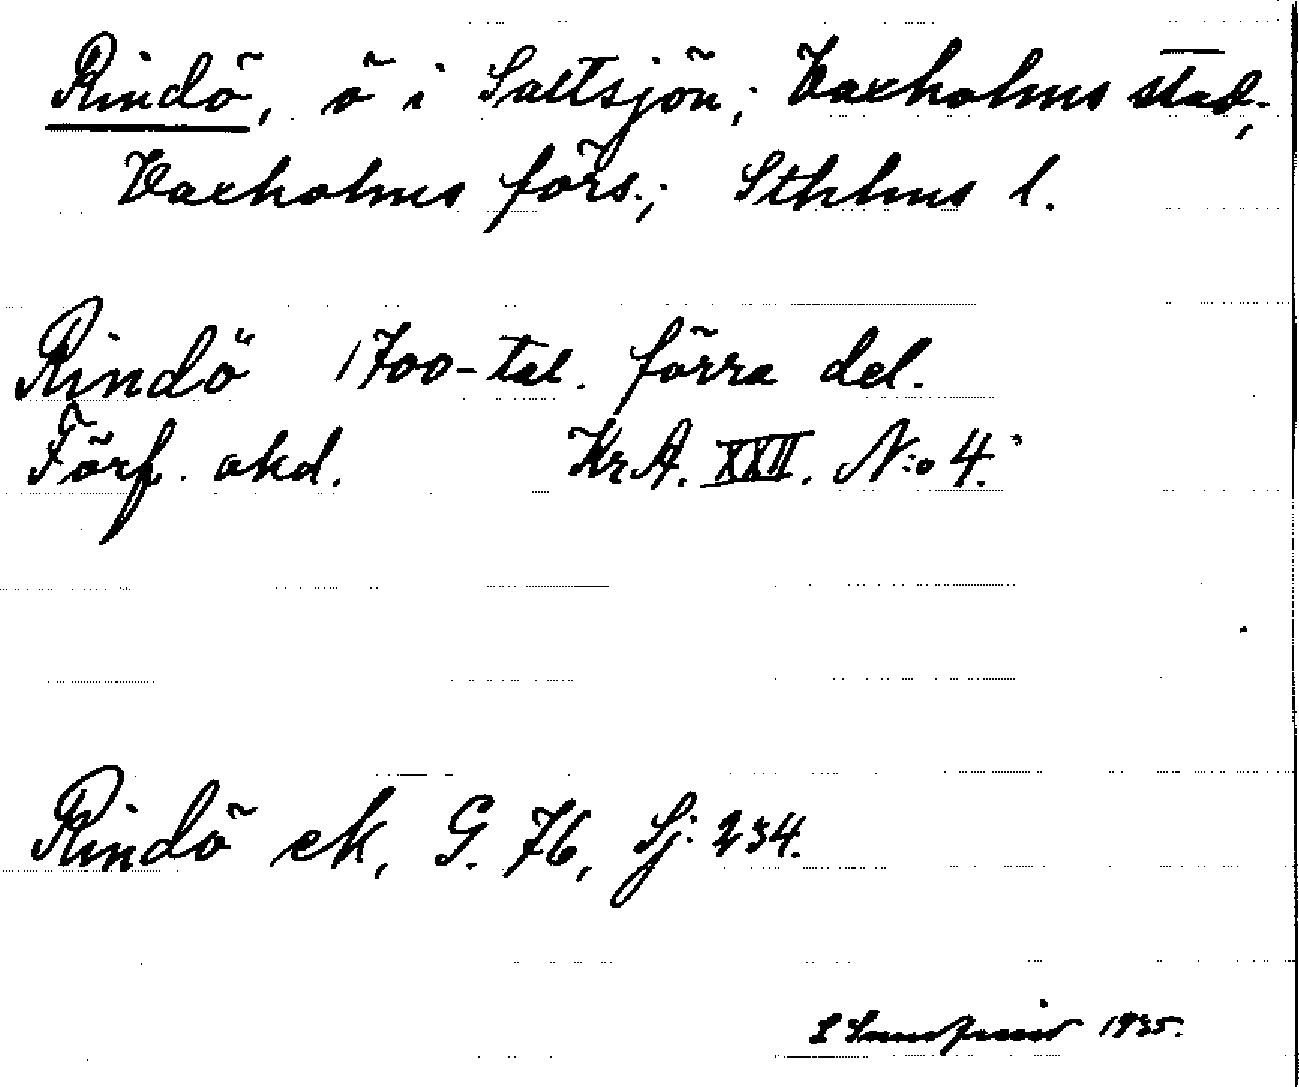 Rindö, ö i Saltsjön; Vaxholms stad;
Vaxholms förs.; Sthlms l.
Rindö 1700-tal. förra del.
Förf. okd. KrA. XXII. N:o 4.
Rindö ek, G. 76, Sj: 234.
1935.